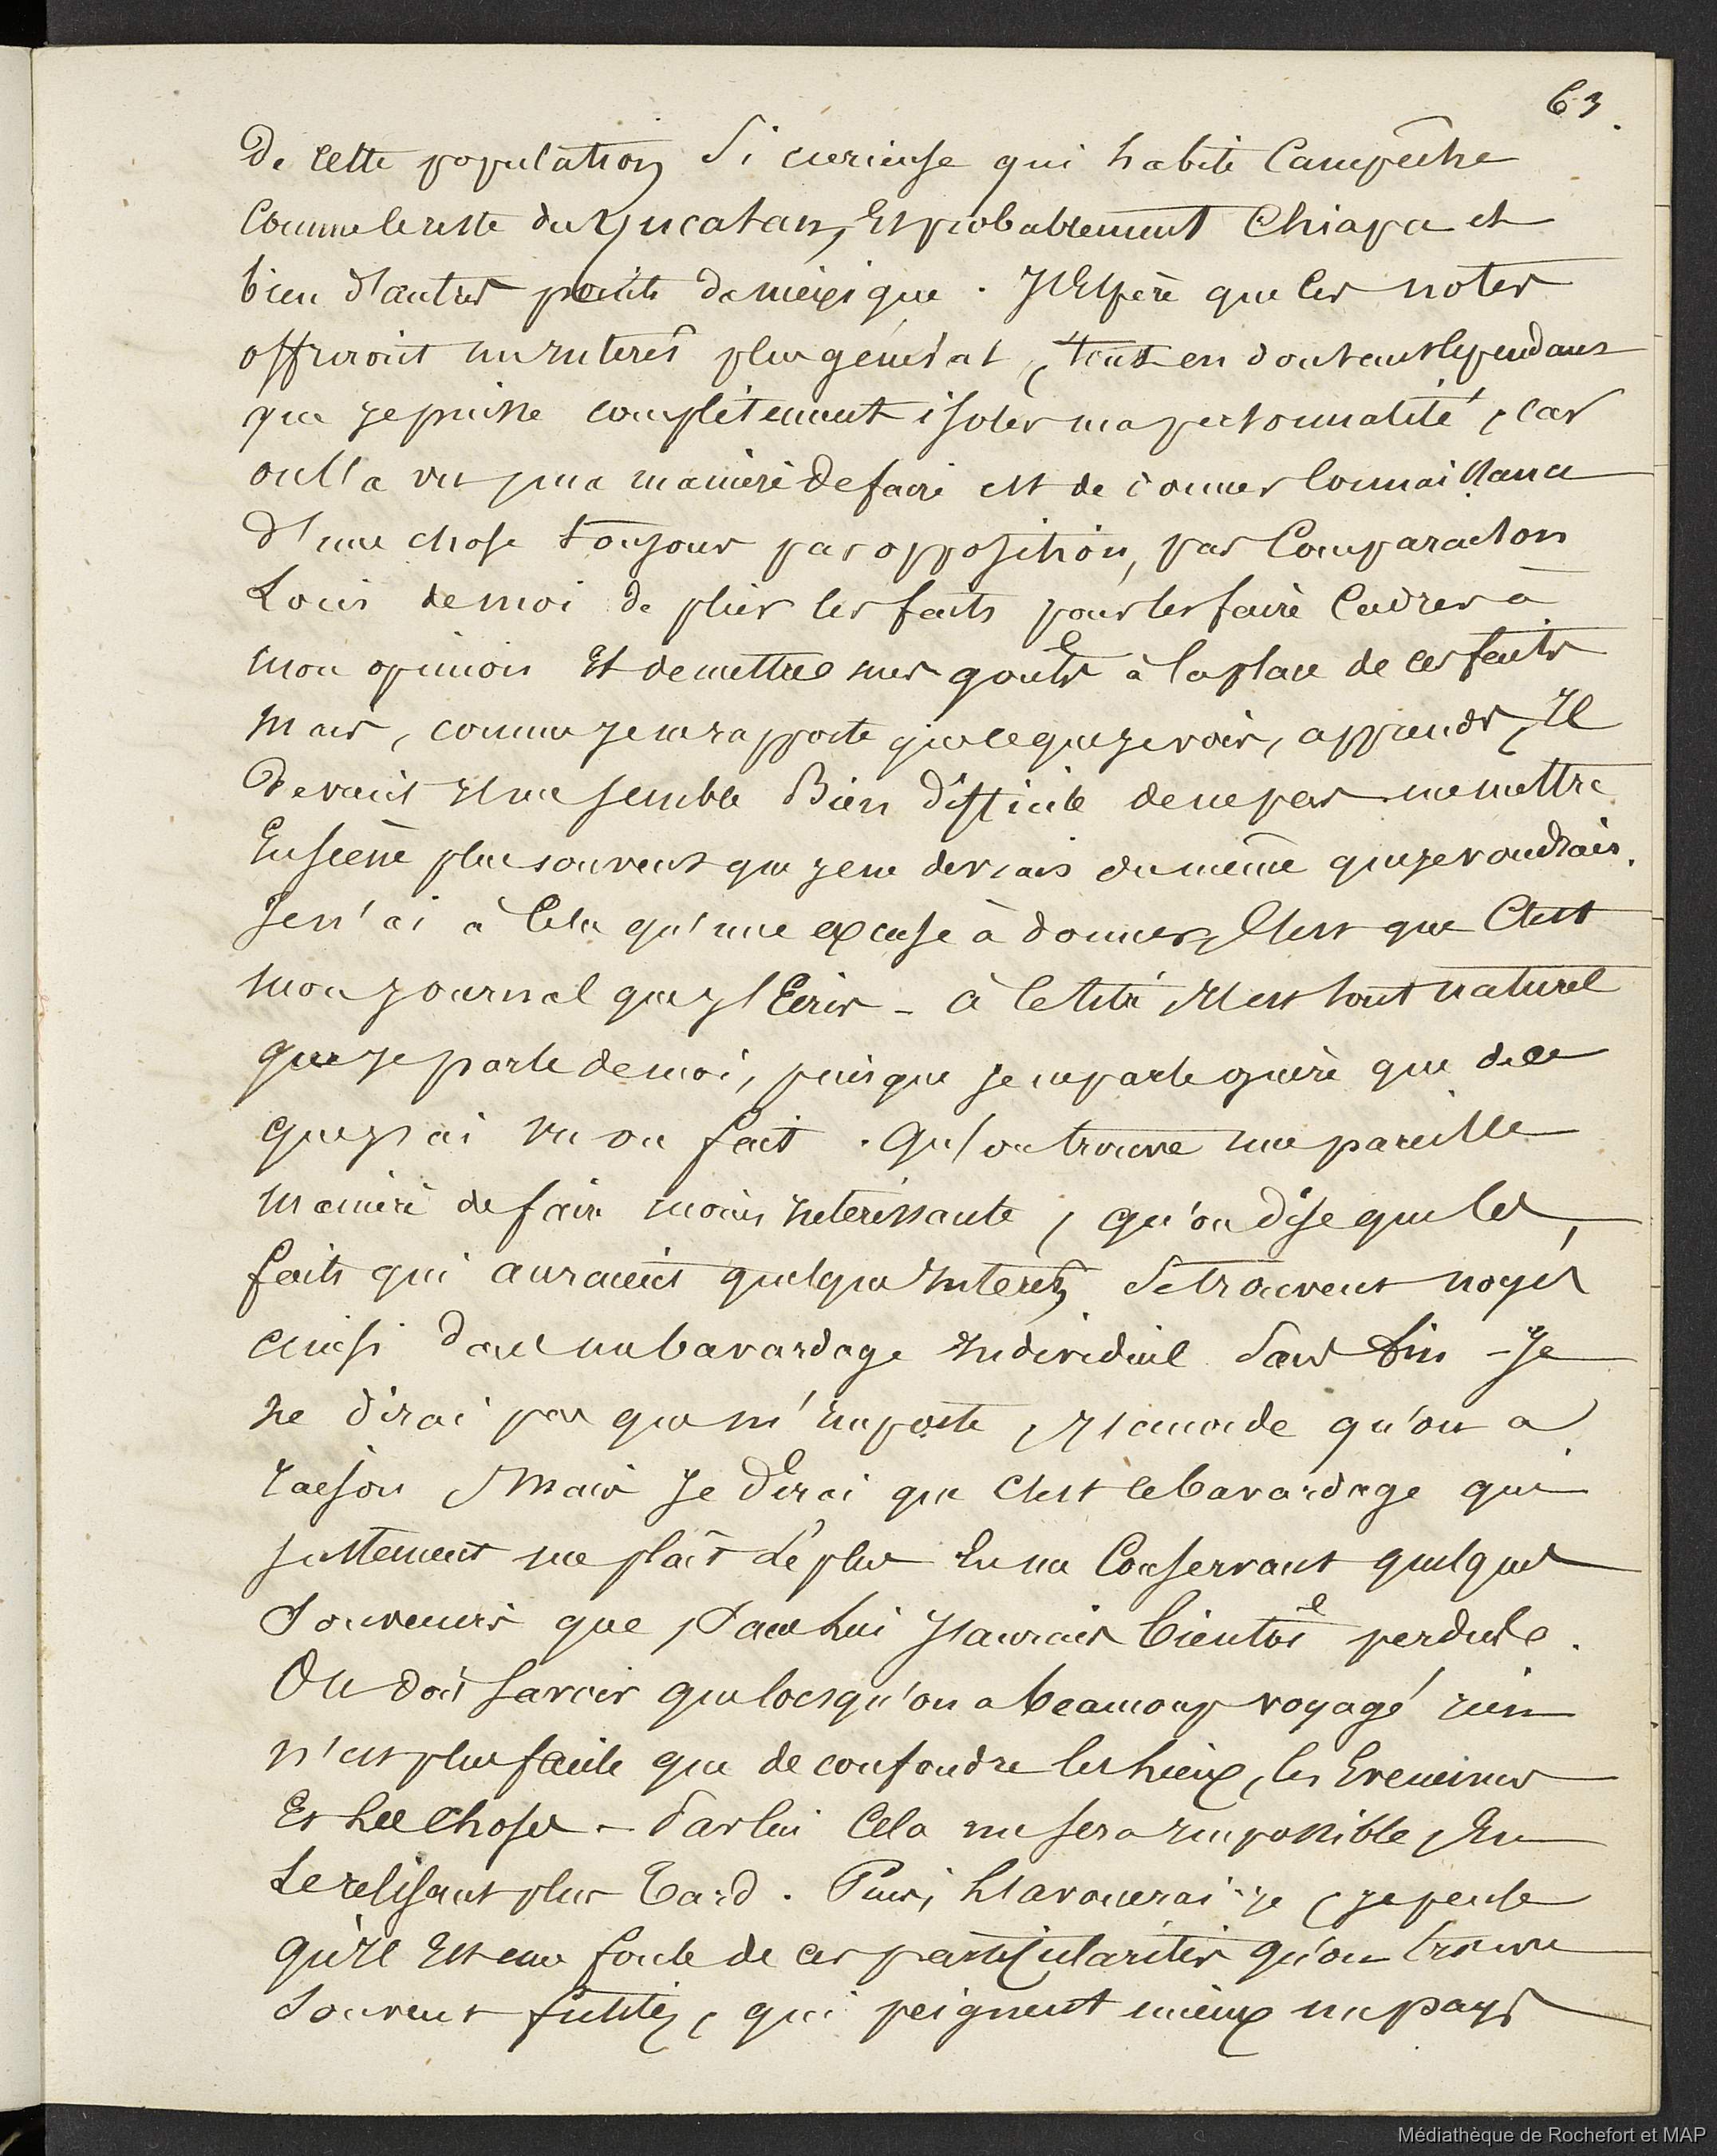 63.
De cette population si curieuse qui habite Campêche
Comme le reste du Yucatan, Et probablement Chiapa et
bien d'autres points du méxique. J'Espère que les notes
offriront un interêt plus général, tout en doutant cependant
que je puisse complètement isoler ma personnalité, car
on l'a vu, ma manière de faire est de donner Connaissance
d'une chose toujours par opposition, par Comparaison
Loin de moi de plier les faits pour les faire Cadrer à
mon opinion Et de mettre mes goûts à la place de ces faits
Mais, comme je ne rapporte que ce que je vois, apprends, Il
devient il me semble Bien difficile de ne pas me mettre
En scène plus souvent que je ne devrais ou même que je voudrais.
Je n'ai à Cela qu'une excuse à donner, C'est que C'est
mon journal que j'Ecris - à Ce titre Il est tout naturel
que je parle de moi, puisque je ne parle guère que de ce
que j'ai vu ou fait. Qu'on trouve une pareille
manière de faire moins interessante, qu'on dise que les
faits qui auraient quelque interêt, se trouvent noyés
ainsi dans un bavardage individuel sans fin - Je
ne dirai pas que m'importe, j'accorde qu'on a
raison, Mais Je dirai que C'est ce bavardage qui
justement me plait le plus En me Conservant quelques
souvenirs que, sans lui j'aurais bientôt perdus.
On doit savoir que lorsqu'on a beaucoup voyagé rien
n'est plus facile que de confondre les lieux, les Evenements
Et les Choses - Par lui Cela me sera impossible, En
le relisant plus tard. Puis, l'avouerai-je, je pense
qu'Il Est une foule de ces particularités qu'on trouve
souvent futiles, qui peignent mieux un pays
Médiathèque de Rochefort et MAP